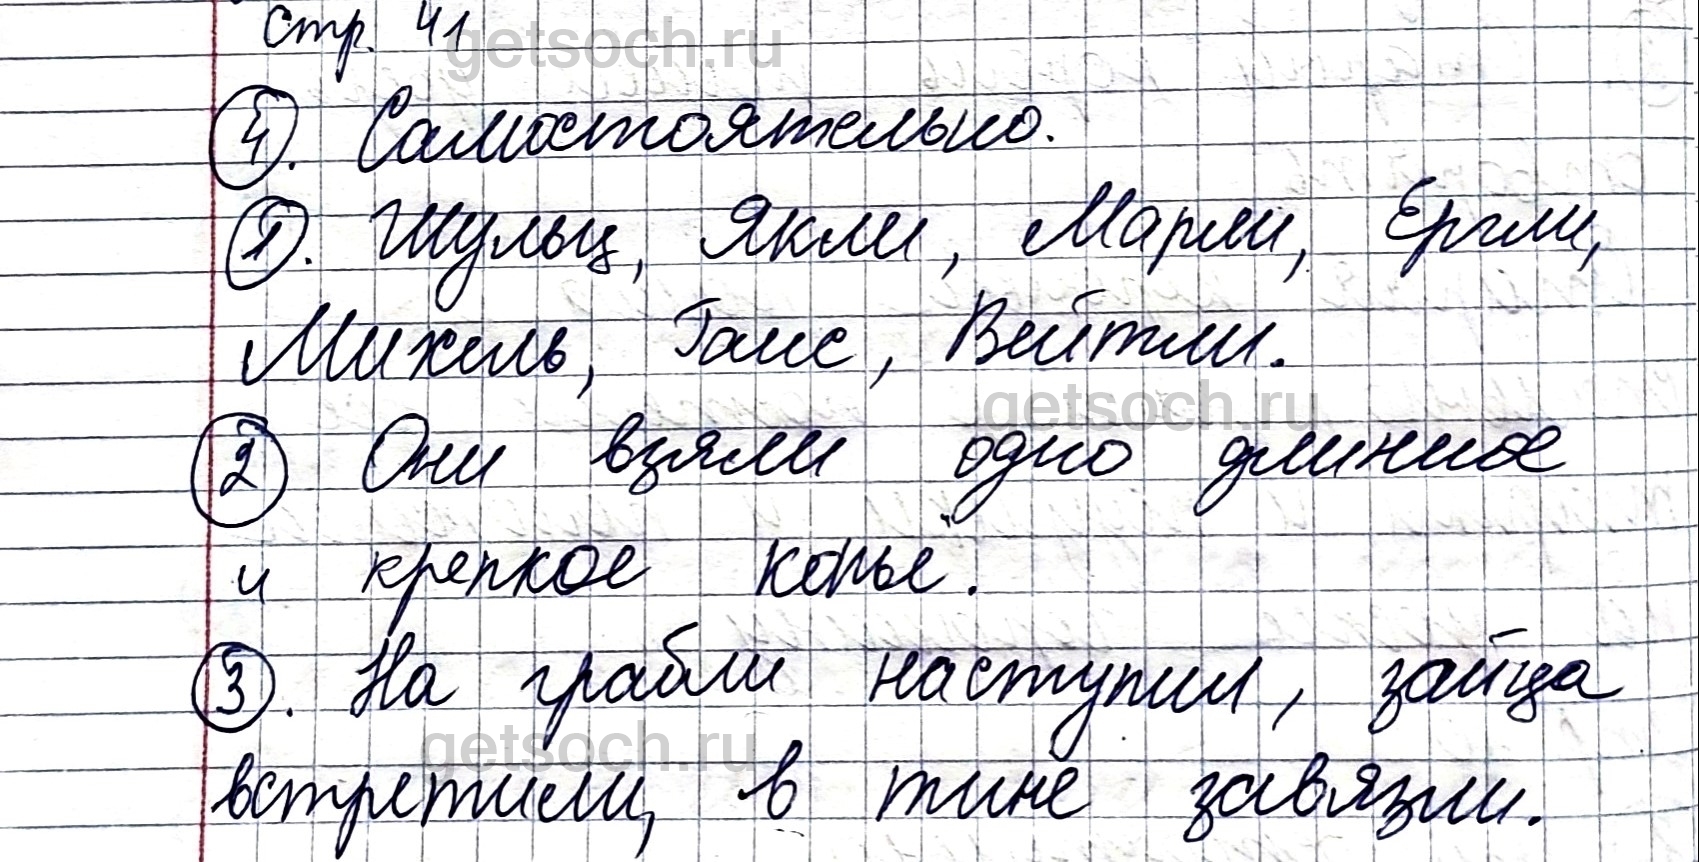 стр. 41
getsoch.ru
4. Самостоятельно.
1. Шульц, Якли, Марли, Ергли,
Михель, Ганс, Вейтли.
getsoch.ru
2 Они взяли одно длинное
и крепкое копье.
3. На грабли наступил, зайца
getsoch.ru
встретили, в тине завязли.